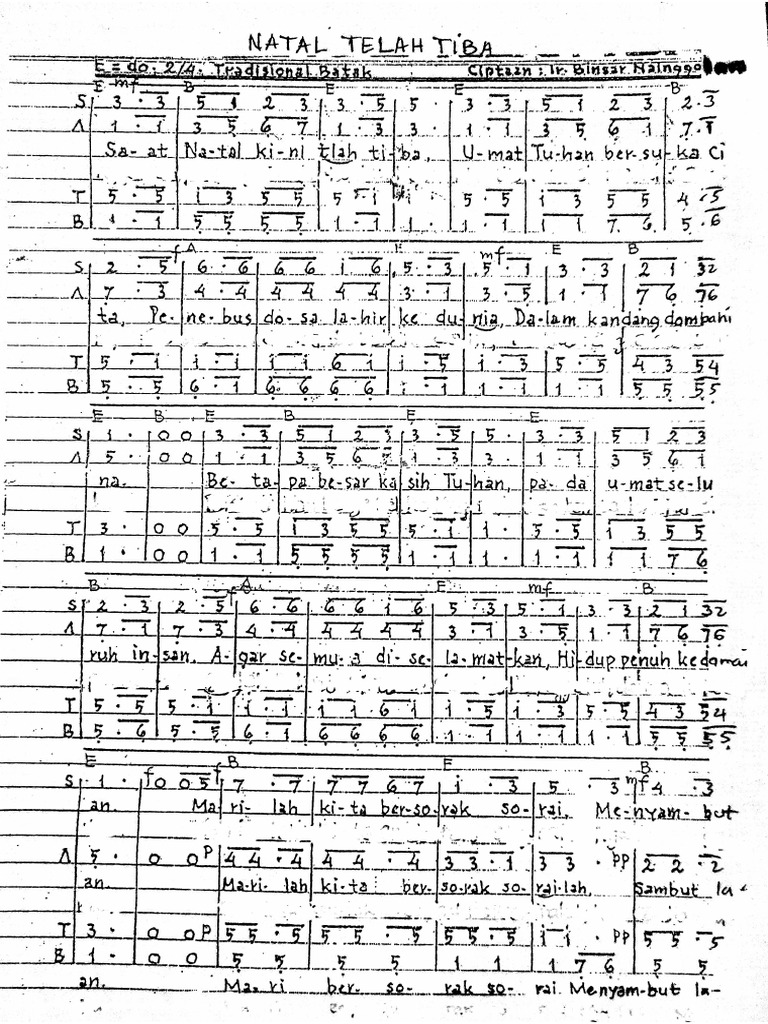 NATAL TELAH TIBA
E = do. 2/4. Tradisional Batak Ciptaan : Ir. Binsar Nainggolan
E mf B E E B
S 3 . 3 5 1 2 3 3 . 5 5 . 3 . 3 5 1 2 3 2 . 3
A 1 . 1 3 5 6 7 1 . 3 3 . 1 . 1 3 5 6 1 7 . 1
Sa- at Na-tal ki-ni tlah ti-ba, U-mat Tu-han ber-su-ka Ci
T 5 . 5 1 3 5 5 5 1 1 . 5 5 1 3 5 5 4 . 5
B 1 . 1 5 5 5 5 1 . 1 1 . 1 . 1 1 1 7 6 5 . 6
f A mf E B
S 2 . 5 6 . 6 6 6 1 6 5 . 3 5 . 1 3 . 3 2 1 32
A 7 . 3 4 . 4 4 4 4 4 3 . 1 3 . 5 1 . 1 7 6 76
ta, Pe- ne-bus do-sa la-hir ke du-nia, Da-lam kandang domba hi
T 5 . 1 1 . 1 1 1 6 1 1 . 5 1 . 3 5 . 5 4 3 54
B 5 . 5 6 . 1 6 6 6 6 1 . 1 1 . 1 1 . 1 5 5 55
E B E B E E
S 1 . 0 0 3 . 3 5 1 2 3 3 . 5 5 . 3 . 3 5 1 2 3
A 5 . 0 0 1 . 1 3 5 6 7 1 . 3 3 . 1 . 1 3 5 6 1
na. Be- ta- pa be-sar ka sih Tu-han, pa- da u-mat se-lu
T 3 . 0 0 5 . 5 1 3 5 5 5 . 1 1 . 5 . 5 1 3 5 5
B 1 . 0 0 1 . 1 5 5 5 5 1 . 1 1 . 1 . 1 1 1 7 6
B A E mf B
S 2 . 3 2 . 5 6 . 6 6 6 1 6 5 . 3 5 . 1 3 . 3 2 1 32
A 7 . 1 7 . 3 4 . 4 4 4 4 4 3 . 1 3 . 5 1 . 1 7 6 76
ruh in-san, A-gar se-mu-a di-se- la-mat-kan, Hi-dup penuh kedamai
T 5 . 5 5 . 1 1 . 1 1 1 6 1 1 . 5 1 . 3 5 . 5 4 3 54
B 5 . 6 5 . 5 6 . 1 6 6 6 6 1 . 1 1 . 1 1 . 1 5 5 55
E B E B
S 1 . 0 0 5 f 7 . 7 7 7 6 7 1 . 3 5 . 3 mf 4 . 3
an. Ma- ri- lah ki-ta ber-so-rak so-rai, Me-nyam-but
A 5 . 0 0 p 4 4 . 4 4 4 . 4 3 3 . 1 3 3 . pp 2 2 . 2
an. Ma-ri- lah ki-ta ber- so-rak so-rai-lah, Sambut la-
T 3 . 0 0 p 5 5 . 5 5 5 . 5 5 5 . 5 1 1 . pp 5 5 . 5
B 1 . 0 0 5 5 5 5 1 1 1 7 6 5 5
an. Ma- ri ber- so- rak so- rai. Menyam-but la-